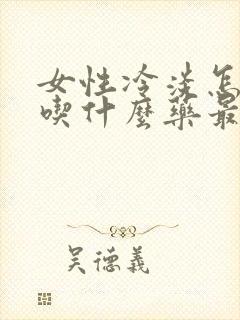 女性冷淡怎
喫什麼藥最
吴德義